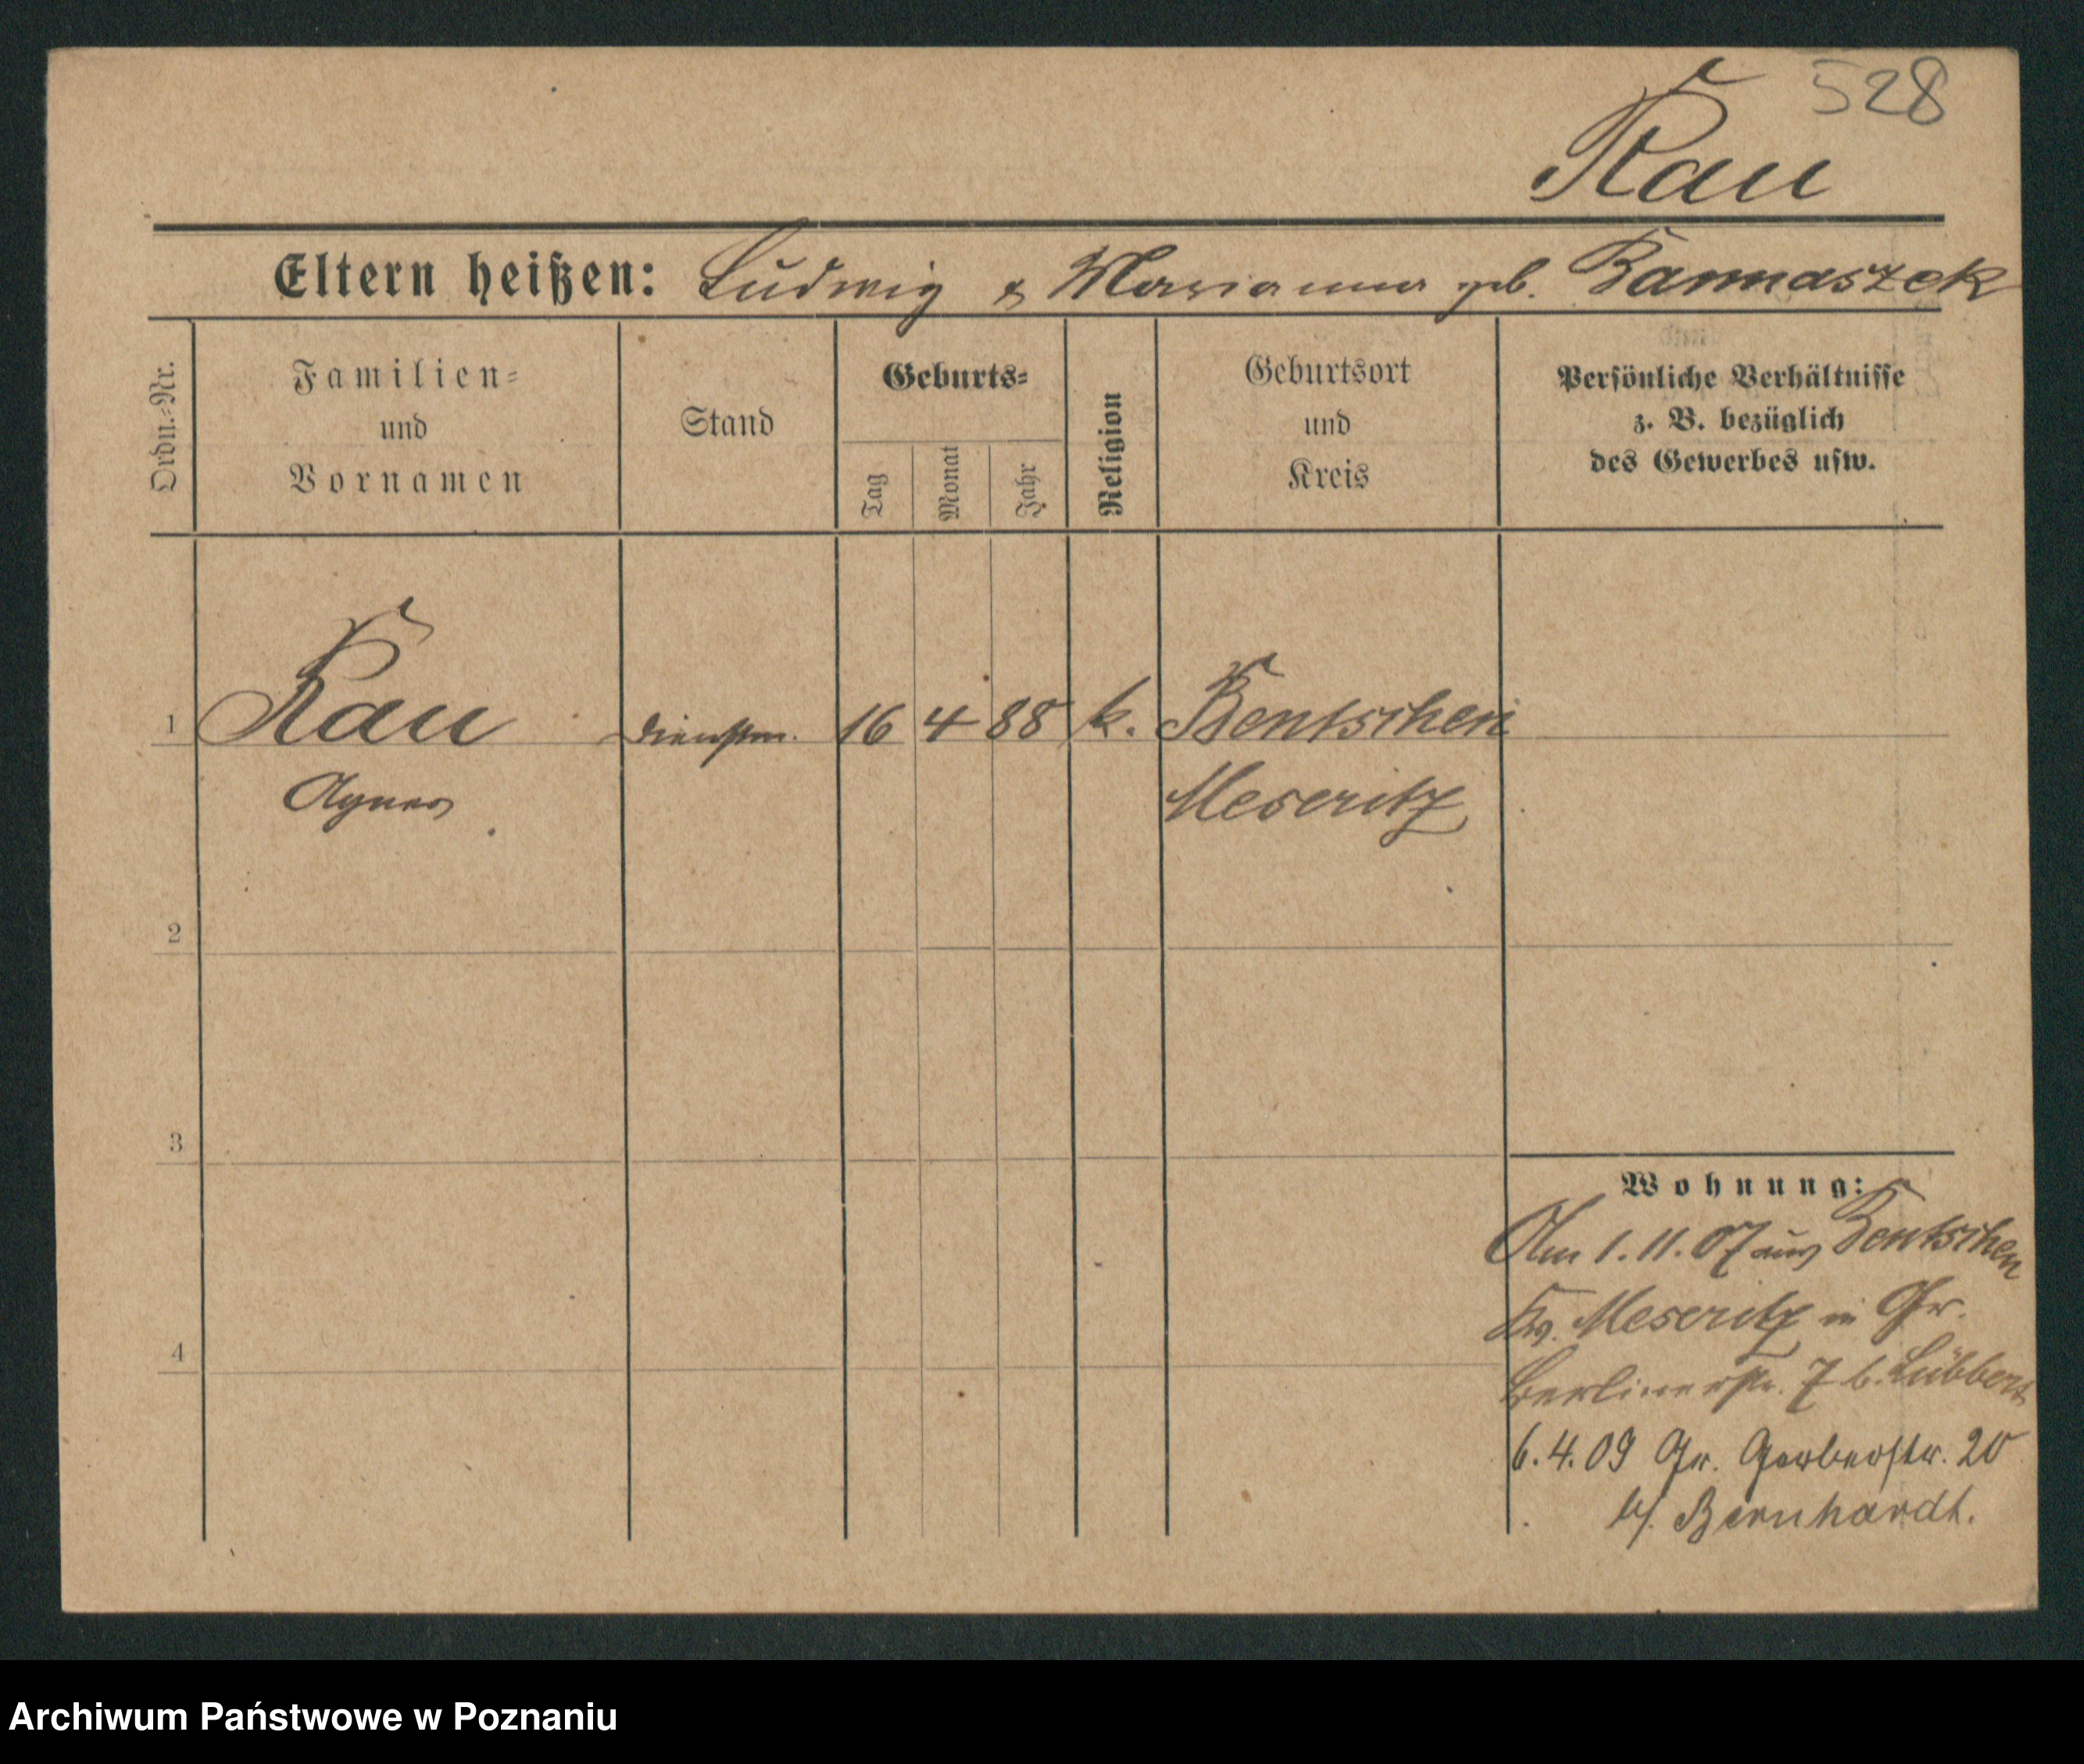 528
Rau
Eltern heißen: Ludwig & Marianna geb. Bannaszek
Ordn.-Nr.
Familien-
und
Vornamen
Stand
Geburts-
Tag
Monat
Jahr
Religion
Geburtsort
und
Kreis
Persönliche Verhältnisse
z. B. bezüglich
des Gewerbes usw.
1 Rau Dienstm. 16 4 88 k. Bentschen
Agnes Meseritz
2
3
4
Wohnung:
Am 1.11.07 aus Bentschen
Kr. Meseritz in Gr.
Berlinerstr. 7 b. Lübbers
6.4.09 Gr. Gerberstr. 20
b/. Bernhardt.
Archiwum Państwowe w Poznaniu